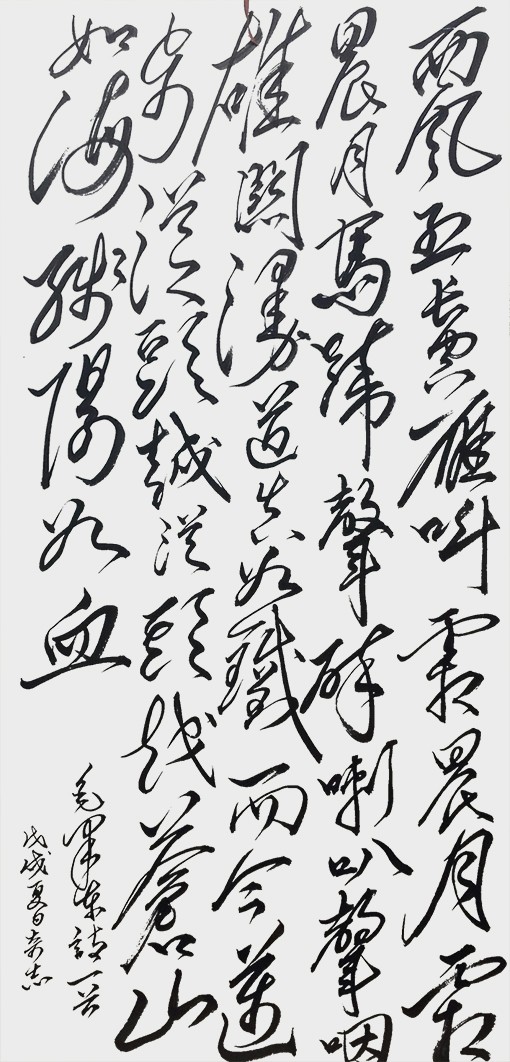 西風烈長空雁叫霜晨月霜
晨月馬蹄聲碎喇叭聲咽
雄關漫道真如鐵而今邁
步從頭越從頭越蒼山
如海殘陽如血
毛澤東詩一首
戊戌夏日奇志